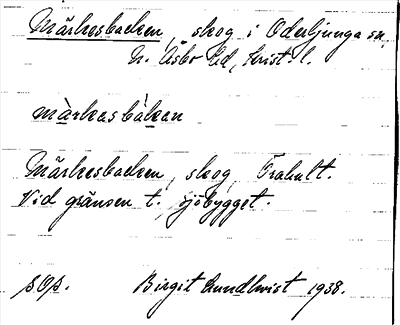 Märkesbacken, skog i Oderljunga sn,
N. Åsbo hd, Krist. l.
màrkasbákan
Märkesbacken, skog, Trahult.
Vid gränsen t. Sjöbygget.
sOp. Birgit Lundkvist 1938.